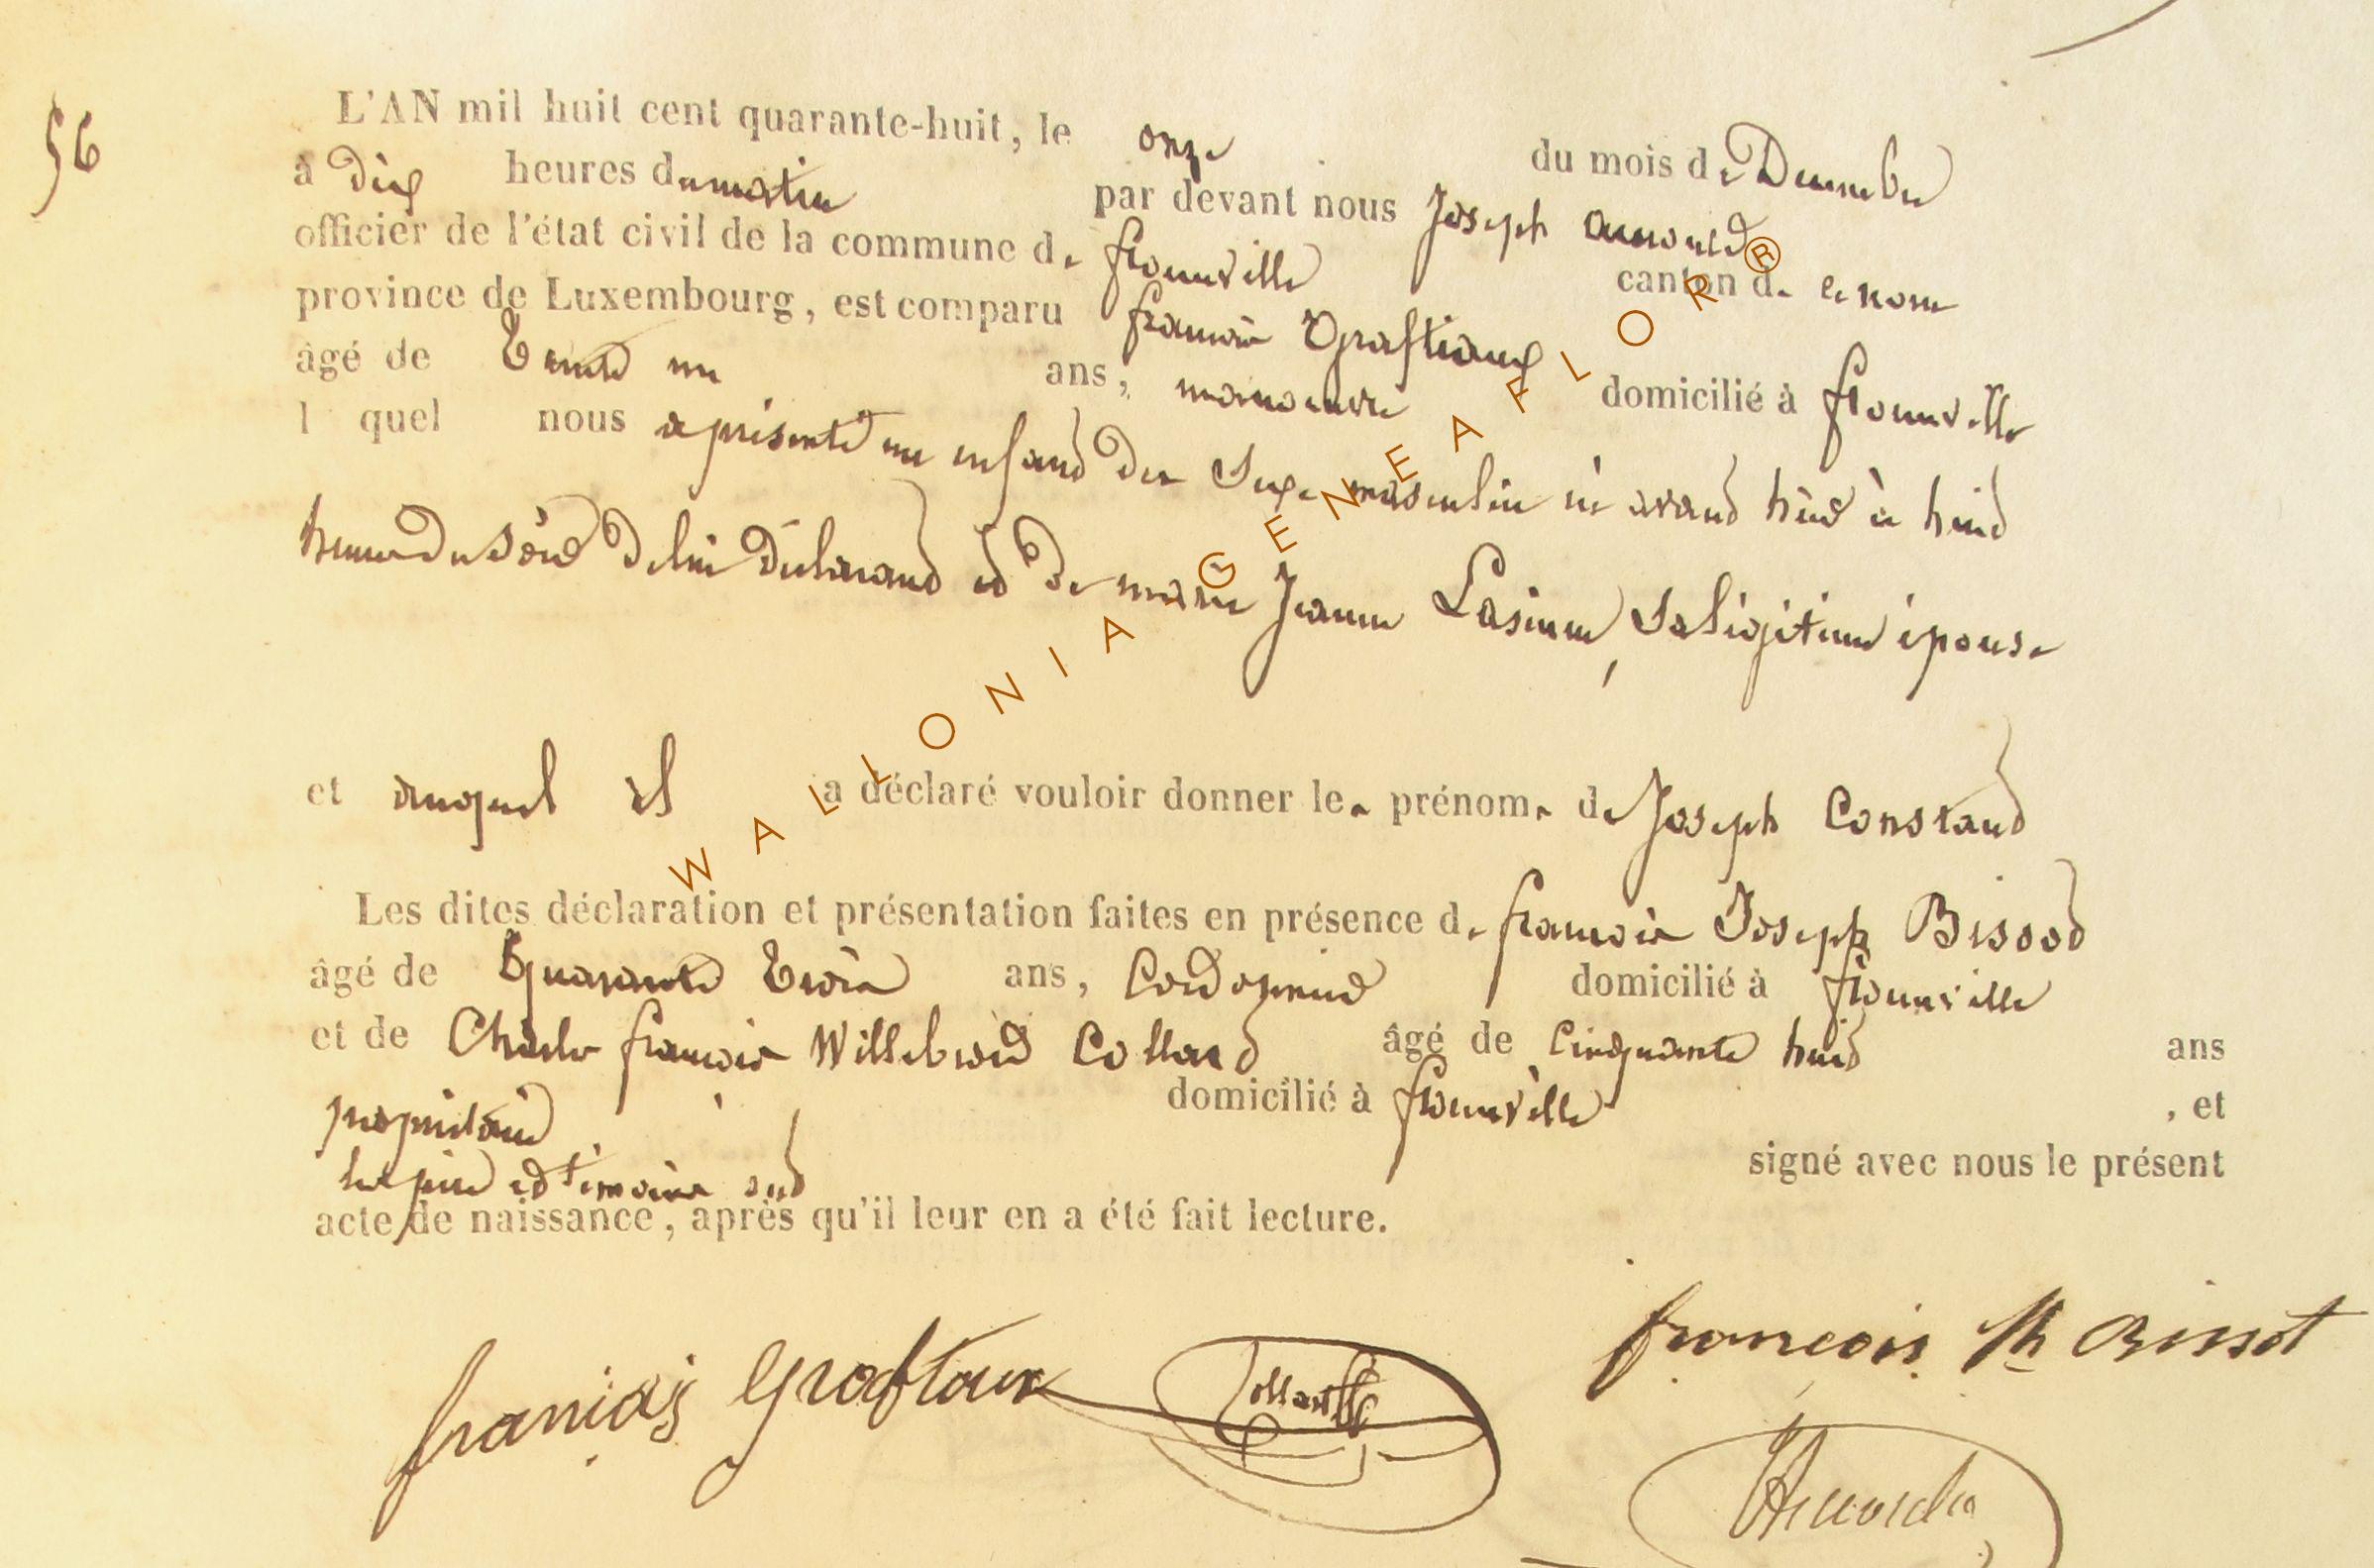 56
L'AN mil huit cent quarante-huit, le onze du mois de Decembre
à dix heures du matin par devant nous Joseph arnould
officier de l'état civil de la commune de florenville canton de ce nom
province de Luxembourg, est comparu francois Graftiaux
âgé de Trente un ans, manoeuvre domicilié à florenville
l quel nous a présenté un enfant du sexe masculin né avant hier à huit
heures du Soir de lui déclarant et de marie Jeanne Lasieur, Sa légitime épouse
et auquel il a déclaré vouloir donner les prénoms de Joseph Constant
Les dites déclaration et présentation faites en présence de francois Joseph Bisoot
âgé de Quarante Trois ans, Cordonnier domicilié à florenville
et de Charles francois Willebrord Collard âgé de Cinquante huit ans
propriétaire domicilié à florenville , et
les père et témoins ont signé avec nous le présent
acte de naissance, après qu'il leur en a été fait lecture.
francois Graftiaux
francois Bissot
WALLONIA GENEAFLOR®